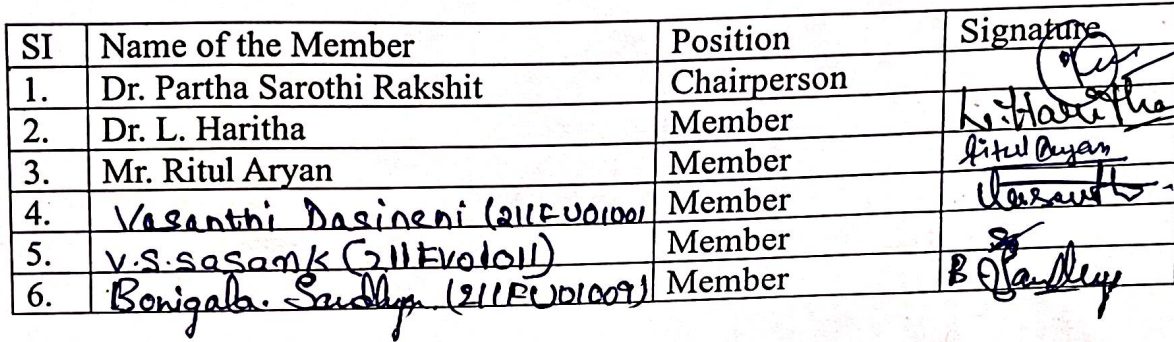 SI Name of the Member Position Signature
1. Dr. Partha Sarothi Rakshit Chairperson
2. Dr. L. Haritha Member L. Haritha
3. Mr. Ritul Aryan Member Ritul Aryan
4. Vasanthi Dasineni (211FU01001 Member Vasanth
5. V.S.Sasank (211FV01011) Member
6. Bonigala. Sandhya (211FU01009) Member B Sandhya